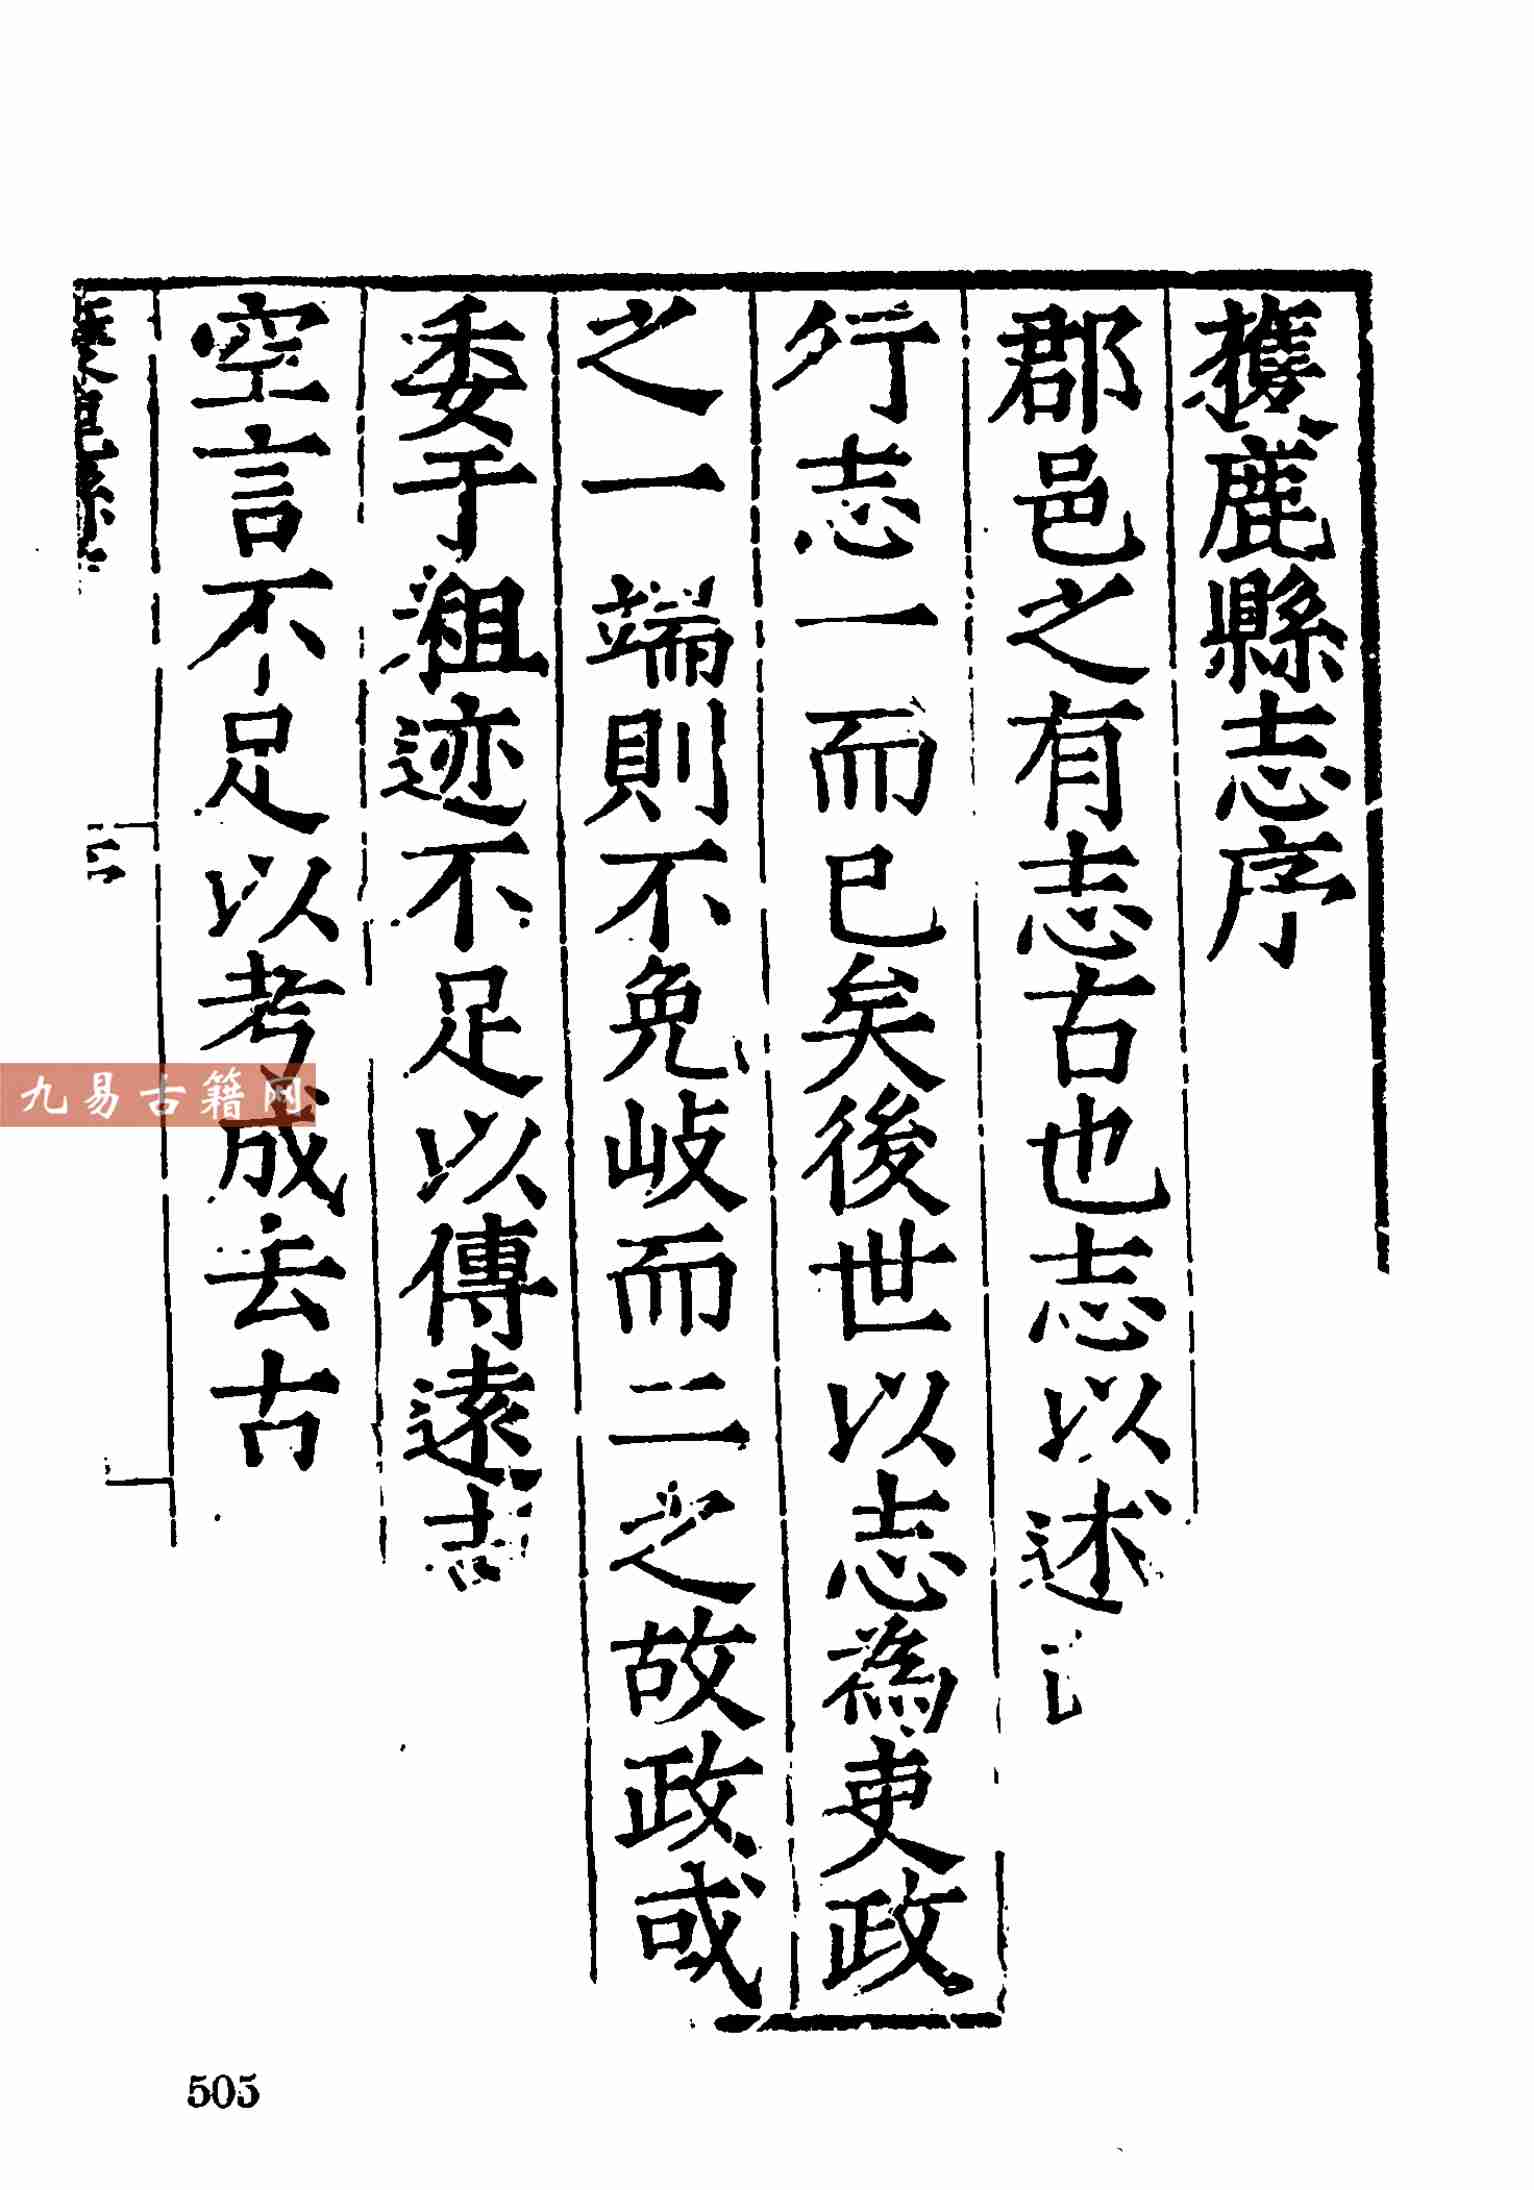 獲鹿縣志序
郡邑之有志古也志以述
行志一而已矣後世以志為吏政
之一端則不免歧而二之故政或
委于粗迹不足以傳遠志
空言不足以考成去古
九易古籍网
505